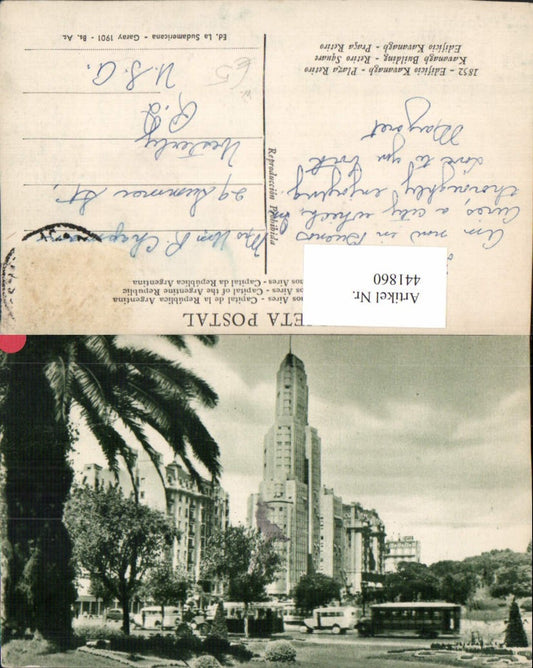 1852 - Edificio Kavanagh - Plaza Retiro
Kavanagh Building, - Retiro Square
Edificio Kavanagh - Praça Retiro
Am now in Buenos
Aires, a city which, I'm
thoroughly enjoying
Love to you both
Margaret
Reproducción Prohibida
Ed. La Sudamericana - Garay 1901 - Bs. As.
Mrs Wm R Chapman
29 Summer St.
Westerly
R.I.
U.S.A.
€5
ETA POSTAL
nos Aires - Capital de la República Argentina
os Aires - Capital of the Argentine Republic
nos Aires - Capital da República Argentina
Artikel Nr.
441860